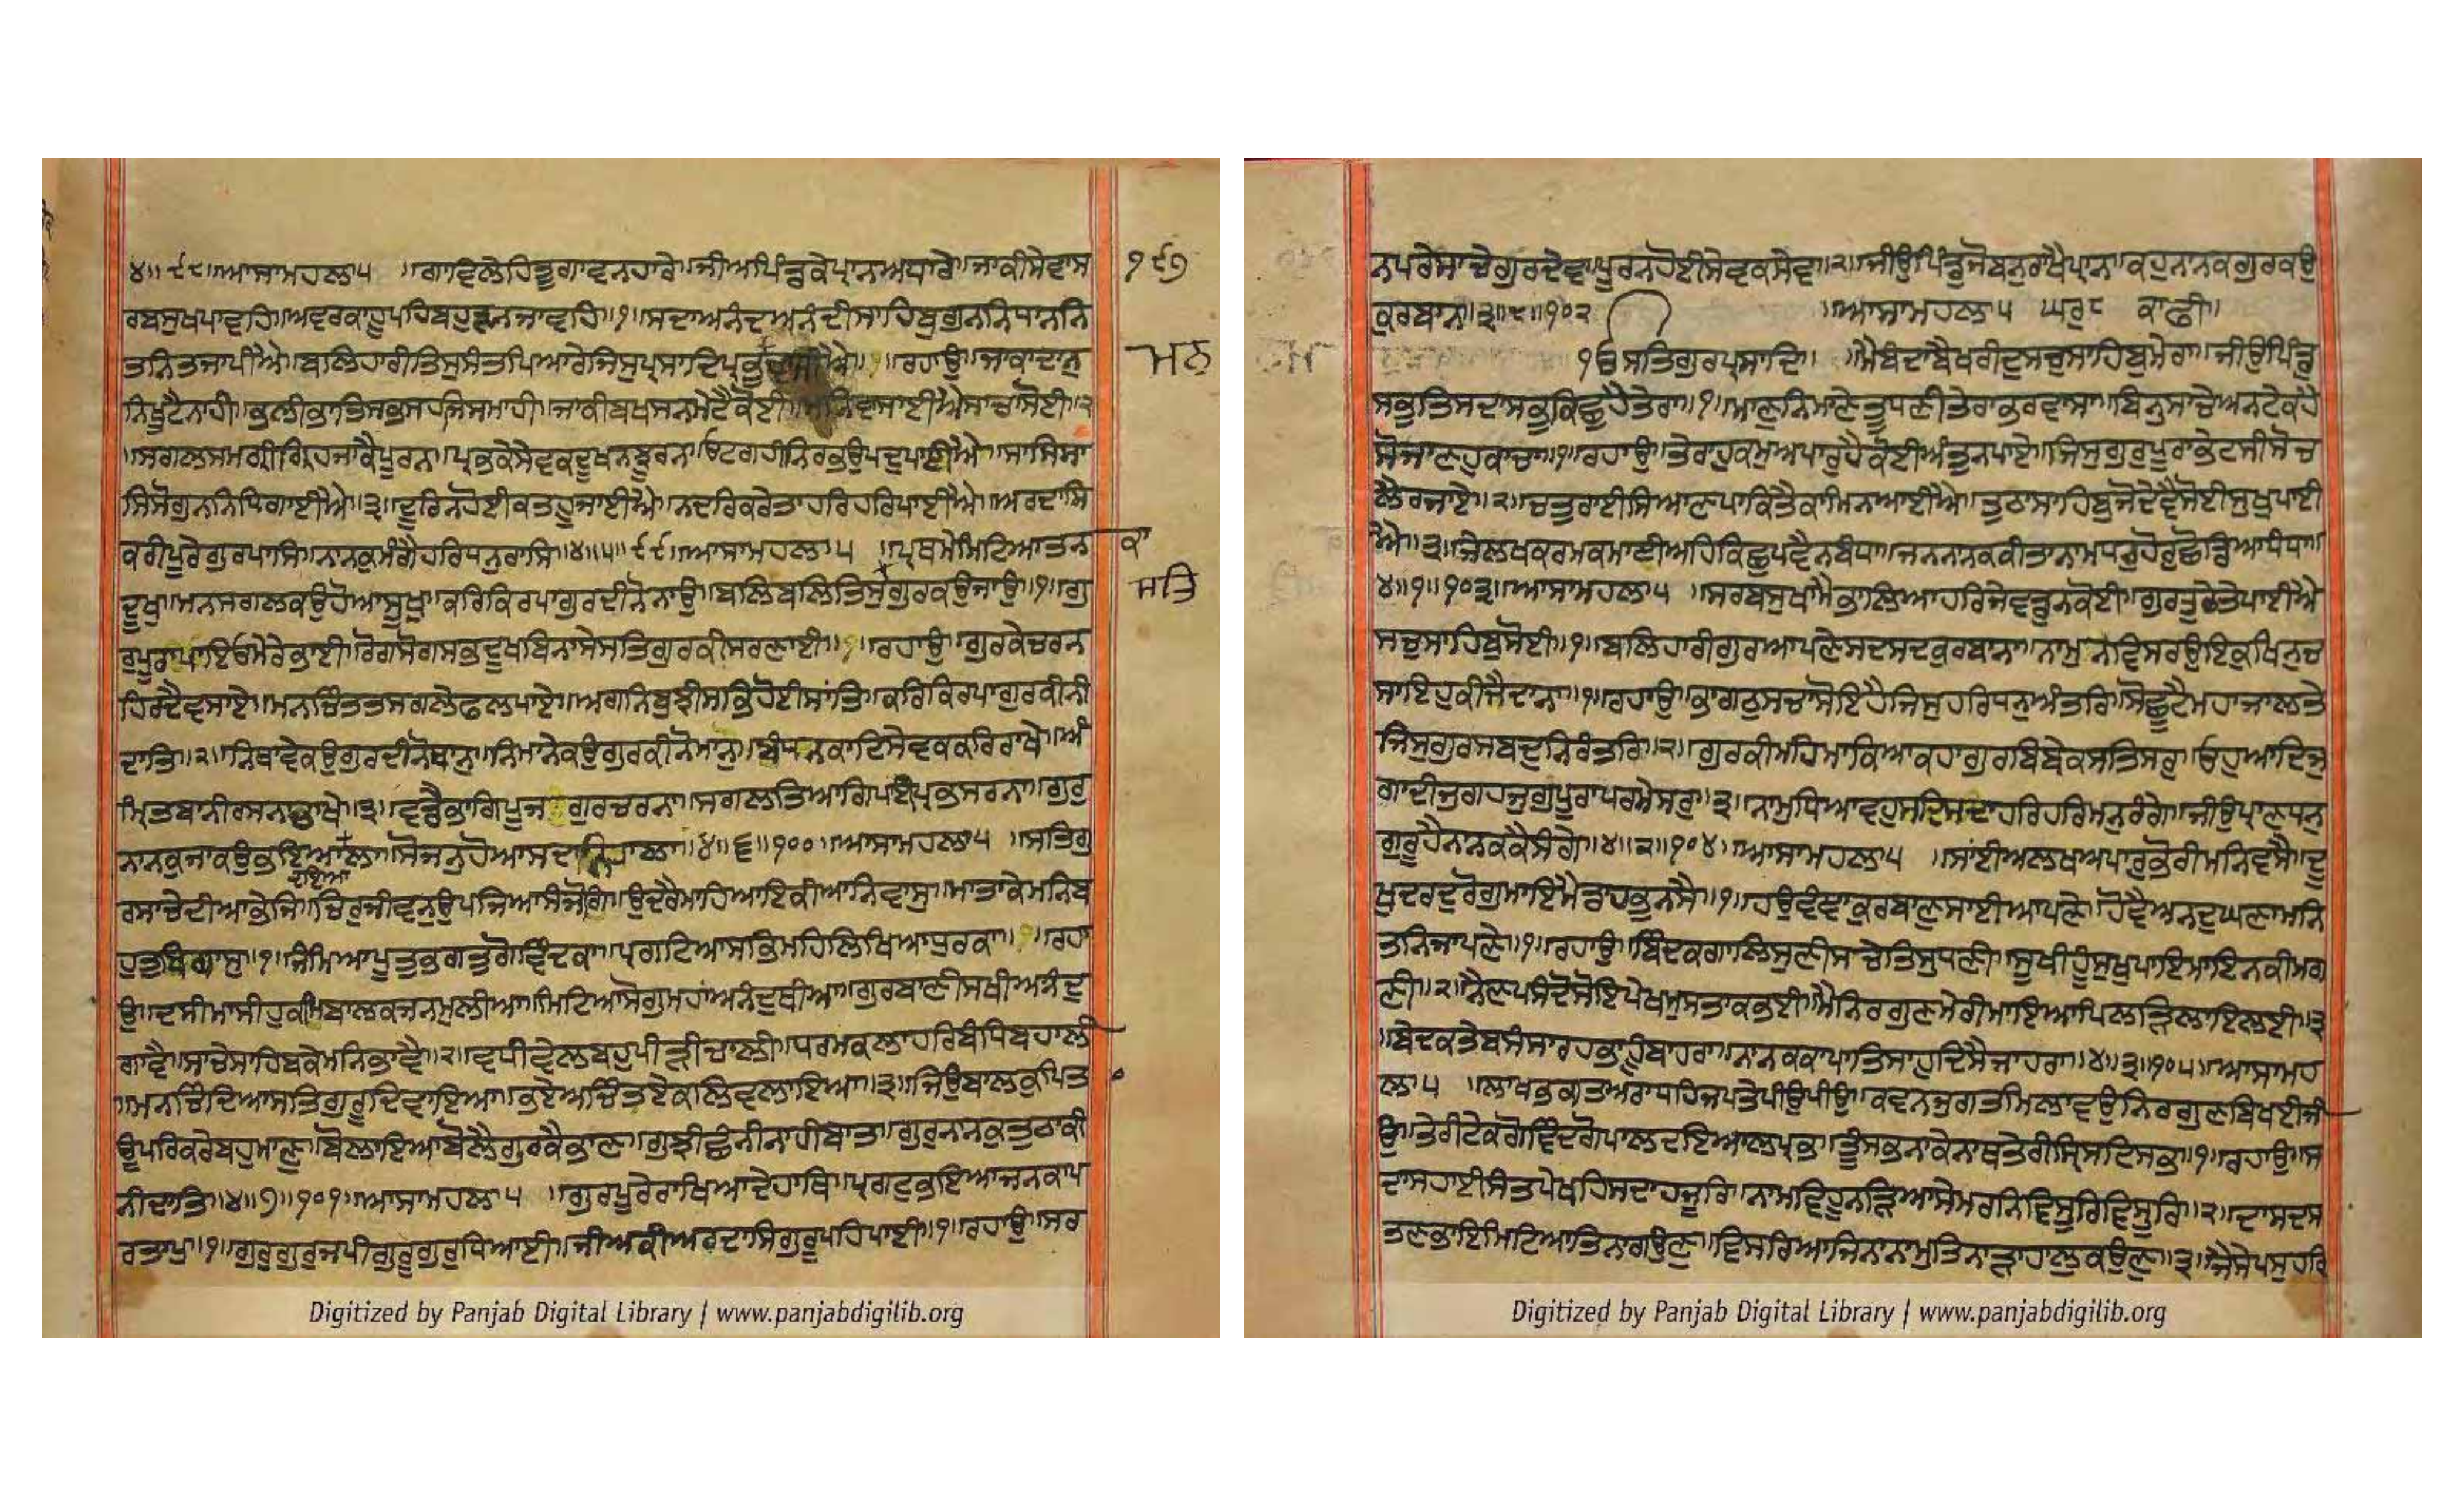 ੪॥੯੮॥ਆਸਾਮਹਲਾ੫ ॥ਗਾਵਿਲੇਹਿਤੂਗਾਵਨਹਾਰੇ॥ਜੀਅਪਿੰਡਕੇਪ੍ਰਾਨਅਧਾਰੇ॥ਜਾਕੀਸੇਵਾਸ
ਰਬਸੁਖਪਾਵਹਿ॥ਅਵਰਕਾਹੂਪਹਿਬਹੁੜਿਨਜਾਵਹਿ॥੧॥ਸਦਾਅਨੰਦਅਨੰਦੀਸਾਹਿਬੁਗੁਨਨਿਧਾਨਨਿ
ਤਨਿਤਜਾਪੀਐ॥ਬਲਿਹਾਰੀਤਿਸੁਸੰਤਪਿਆਰੇਜਿਸੁਪ੍ਰਸਾਦਿਪ੍ਰਭੁ ॥ਰਹਾਉ॥ਜਾਕਾਦਾਨੁ
ਨਿਖੂਟੈਨਾਹੀ॥ਭਲੀਭਾਤਿਸਭਸਹਜਿਸਮਾਹੀ॥ਜਾਕੀਬਖਸਨਮੇਟੈਕੋਈ॥ਮਨਿਵਸਾਈਐਸਾਚਾਸੋਈ॥੨
॥ਸਗਲਸਮਗ੍ਰੀਗ੍ਰਿਹਜਾਕੈਪੂਰਨ॥ਪ੍ਰਭਕੇਸੇਵਕਦੂਖਨਝੂਰਨ॥ਓਟਗਹੀਨਿਰਭਉਪਦੁਪਾਈਐ॥ਸਾਸਿਸਾ
ਸਿਸੋਗੁਨਨਿਧਿਗਾਈਐ॥੩॥ਦੂਰਿਨਹੋਈਕਤਹੂਜਾਈਐ॥ਨਦਰਿਕਰੇਤਾਹਰਿਹਰਿਪਾਈਐ॥ਅਰਦਾਸਿ
ਕਰੀਪੂਰੇਗੁਰਪਾਸਿ॥ਨਾਨਕੁਮੰਗੈਹਰਿਧਨੁਰਾਸਿ॥੪॥੫॥੯੯॥ਆਸਾਮਹਲਾ੫ ॥ਪ੍ਰਥਮੇਮਿਟਿਆਤਨ
ਦੂਖ॥ਮਨਸਗਲਕਉਹੋਆਸੂਖੁ॥ਕਰਿਕਿਰਪਾਗੁਰਦੀਨੋਨਾਉ॥ਬਲਿਬਲਿਤਿਸੁਗੁਰਕਉਜਾਉ॥੧॥ਗੁ
ਰੁਪੂਰਾਪਾਇਓਮੇਰੇਭਾਈ॥ਰੋਗਸੋਗਸਭਦੂਖਬਿਨਾਸੇਸਤਿਗੁਰਕੀਸਰਣਾਈ॥੧॥ਰਹਾਉ॥ਗੁਰਕੇਚਰਨ
ਹਿਰਦੈਵਸਾਏ॥ਮਨਚਿੰਤਤਸਗਲੇਫਲਪਾਏ॥ਅਗਨਿਬੁਝੀਸਭਿਹੋਈਸਾਂਤਿ॥ਕਰਿਕਿਰਪਾਗੁਰਕੀਨੀ
ਦਾਤਿ॥੨॥ਨਿਥਾਵੇਕਉਗੁਰਦੀਨੋਥਾਨੁ॥ਨਿਮਾਨੇਕਉਗੁਰਕੀਨੋਮਾਨੁ॥ਬੰਧਨਕਾਟਿਸੇਵਕਕਰਿਰਾਖੇ॥ਅੰ
ਮ੍ਰਿਤਬਾਨੀਰਸਨਾਚਾਖੇ॥੩॥ਵਡੈਭਾਗਿਪੂਜ ਗੁਰਚਰਨਾ॥ਸਗਲਤਿਆਗਿਪਾਈਪ੍ਰਭਸਰਨਾ॥ਗੁਰੁ
ਨਾਨਕਜਾਕਉਭਇਆ ਲਾ॥ਸੋਜਨੁਹੋਆਸਦਾਨਿਹਾਲਾ॥੪॥੬॥੧੦੦॥ਆਸਾਮਹਲਾ੫ ॥ਸਤਿਗੁ
ਦਇਆ
ਰਸਾਚੇਦੀਆਭੇਜਿ॥ਚਿਰੁਜੀਵਨੁਉਪਜਿਆਸੰਜੋਗਿ॥ਉਦਰੈਮਾਹਿਆਇਕੀਆਨਿਵਾਸੁ॥ਮਾਤਾਕੇਮਨਿਬ
ਹੁਤੁਬਿਗਾਸੁ॥੧॥ਜੰਮਿਆਪੂਤੁਭਗਤੁਗੋਵਿੰਦਕਾ॥ਪ੍ਰਗਟਿਆਸਭਿਮਹਿਲਿਖਿਆਧੁਰਕਾ॥ ॥ਰਹਾ
ਉ॥ਦਸੀਮਾਸੀਹੁਕਮਿਬਾਲਕਜਨਮੁਲੀਆ॥ਮਿਟਿਆਸੋਗੁਮਹਾਂਅਨੰਦੁਥੀਆ॥ਗੁਰਬਾਣੀਸਖੀਅਨੰਦੁ
ਗਾਵੈ॥ਸਾਚੇਸਾਹਿਬਕੇਮਨਿਭਾਵੈ॥੨॥ਵਧੀਵੇਲਬਹੁਪੀੜੀਚਾਲੀ॥ਧਰਮਕਲਾਹਰਿਬੰਧਿਬਹਾਲੀ
॥ਮਨਚਿੰਦਿਆਸਤਿਗੁਰੂਦਿਵਾਇਆ॥ਭਏਅਚਿੰਤਏਕਲਿਵਲਾਇਆ॥੩॥ਜਿਉਬਾਲਕੁਪਿਤਾ
ਊਪਰਿਕਰੇਬਹੁਮਾਣੁ॥ਬੋਲਾਇਆਬੋਲੈਗੁਰਕੈਭਾਣਾ॥ਗੁਝੀਛੰਨੀਨਾਹੀਬਾਤ॥ਗੁਰੁਨਾਨਕੁਤੁਠਾਕੀ
ਨੀਦਾਤਿ॥੪॥੭॥੧੦੧॥ਆਸਾਮਹਲਾ੫ ॥ਗੁਰਪੂਰੇਰਾਖਿਆਦੇਹਾਥਿ॥ਪ੍ਰਗਟੁਭਇਆਜਨਕਾਪ
ਰਤਾਪੁ॥੧॥ਗੁਰੁਗੁਰੁਜਪੀਗੁਰੂਗੁਰੁਧਿਆਈ॥ਜੀਅਕੀਅਰਦਾਸਿਗੁਰੂਪਹਿਪਾਈ॥੧॥ਰਹਾਉ॥ਸਰ
੧੯੭
ਮਨ
ਕਾ
ਸਤਿ
ਨਪਰੇਸਾਚੇਗੁਰਦੇਵ॥ਪੂਰਨਹੋਈਸੇਵਕਸੇਵ॥੨॥ਜੀਉਪਿੰਡੁਜੋਬਨੁਰਾਖੈਪ੍ਰਾਨ॥ਕਹੁਨਾਨਕਗੁਰਕਉ
ਕੁਰਬਾਨ॥੩॥੮॥੧੦੨ ॥ਆਸਾਮਹਲਾ੫ ਘਰੁ੮ ਕਾਫੀ॥
ੴਸਤਿਗੁਰਪ੍ਰਸਾਦਿ॥ ॥ਮੈਬੰਦਾਬੈਖਰੀਦੁਸਚੁਸਾਹਿਬੁਮੇਰਾ॥ਜੀਉਪਿੰਡੁ
ਸਭੁਤਿਸਦਾਸਭੁਕਿਛੁਹੈਤੇਰਾ॥੧॥ਮਾਣੁਨਿਮਾਣੇਤੂਧਣੀਤੇਰਾਭਰਵਾਸਾ॥ਬਿਨੁਸਾਚੇਅਨਟੇਕਹੈ
ਸੋਜਾਣਹੁਕਾਚਾ॥੧॥ਰਹਾਉ॥ਤੇਰਾਹੁਕਮੁਅਪਾਰੁਹੈਕੋਈਅੰਤੁਨਪਾਏ॥ਜਿਸੁਗੁਰੁਪੂਰਾਭੇਟਸੀਸੋਚ
ਲੈਰਜਾਏ॥੨॥ਚਤੁਰਾਈਸਿਆਣਪਾਕਿਤੈਕਾਮਿਨਆਈਐ॥ਤੁਠਾਸਾਹਿਬੁਜੋਦੇਵੈਸੋਈਸੁਖੁਪਾਈ
ਐ॥੩॥ਜੇਲਖਕਰਮਕਮਾਈਅਹਿਕਿਛੁਪਵੈਨਬੰਧਾ॥ਜਨਨਾਨਕਕੀਤਾਨਾਮੁਧਰਹੋਰੁਛੋਡਿਆਧੰਧਾ॥
੪॥੧॥੧੦੩॥ਆਸਾਮਹਲਾ੫ ॥ਸਰਬਸੁਖਾਮੈਭਾਲਿਆਹਰਿਜੇਵਡੁਨਕੋਈ॥ਗੁਰਤੁਠੇਤੇਪਾਈਐ
ਸਚੁਸਾਹਿਬੁਸੋਈ॥੧॥ਬਲਿਹਾਰੀਗੁਰਆਪਣੇਸਦਸਦਕੁਰਬਾਨਾ॥ਨਾਮੁਨਵਿਸਰਉਇਕੁਖਿਨੁਚ
ਸਾਇਹੁਕੀਜੈਦਾਨਾ॥੧॥ਰਹਾਉ॥ਭਾਗਠੁਸਚਾਸੋਇਹੈਜਿਸੁਹਰਿਧਨੁਅੰਤਰਿ॥ਸੋਛੂਟੈਮਹਾਜਾਲਤੇ
ਜਿਸੁਗੁਰਸਬਦੁਨਿਰੰਤਰਿ॥੨॥ਗੁਰਕੀਮਹਿਮਾਕਿਆਕਹਾਗੁਰੁਬਿਬੇਕਸਤਿਸਰੁ॥ਓਹੁਆਦਿਜੁ
ਗਾਦੀਜੁਗਹਜੁਗੁਪੂਰਾਪਰਮੇਸਰੁ॥੩॥ਨਾਮੁਧਿਆਵਹੁਸਦਿਸਦਾਹਰਿਹਰਿਮਨੁਰੰਗੇ॥ਜੀਉਪ੍ਰਾਣਧਨੁ
ਗੁਰੂਹੈਨਾਨਕਕੈਸੰਗੇ॥੪॥੨॥੧੦੪॥ਆਸਾਮਹਲਾ੫ ॥ਸਾਂਈਅਲਖਅਪਾਰੁਭੋਰੀਮਨਿਵਸੈ॥ਦੂ
ਖੁਦਰਦੁਰੋਗੁਮਾਇਮੈਡਾਹਭੁਨਸੈ॥੧॥ਹਉਵੰਞਾਕੁਰਬਾਣੁਸਾਈਆਪਣੇ॥ਹੋਵੈਅਨਦੁਘਣਾਮਨਿ
ਤਨਿਜਾਪਣੇ॥੧॥ਰਹਾਉ॥ਬਿੰਦਕਗਾਲਿਸੁਣੀਸਚੇਤਿਸੁਧਣੀ॥ਸੂਖੀਹੂੰਸੁਖੁਪਾਇਮਾਇਨਕੀਮਗ
ਣੀ॥੨॥ਨੈਣਪਸੰਦੋਸੋਇਪੇਖਮੁਸਤਾਕਭਈ॥ਮੈਨਿਰਗੁਣਮੇਰੀਮਾਇਆਪਿਲੜਿਲਾਇਲਈ॥੩
॥ਬੇਦਕਤੇਬਸੰਸਾਰਹਭਾਹੂੰਬਾਹਰਾ॥ਨਾਨਕਕਾਪਾਤਿਸਾਹੁਦਿਸੈਜਾਹਰਾ॥੪॥੩॥੧੦੫॥ਆਸਾਮਹ
ਲਾ੫ ॥ਲਾਖਭਗਤਅਰਾਧਹਿਜਪਤੇਪੀਉਪੀਉ॥ਕਵਨਜੁਗਤਮਿਲਾਵਉਨਿਰਗੁਣਬਿਖਈਜੀ
ਉ॥ਤੇਰੀਟੇਕਗੋਵਿੰਦਗੋਪਾਲਦਇਆਲਪ੍ਰਭ॥ਤੂੰਸਭਨਾਕੇਨਾਥਤੇਰੀਸ੍ਰਿਸਟਿਸਭ॥੧॥ਰਹਾਉ॥ਸ
ਦਾਸਹਾਈਸੰਤਪੇਖਹਿਸਦਾਹਜੂਰਿ॥ਨਾਮਵਿਹੂਨੜਿਆਸੇਮਰਨਿਵਿਸੂਰਿਵਿਸੂਰਿ॥੨॥ਦਾਸਦਾਸ
ਤਣਭਾਇਮਿਟਿਆਤਿਨਾਗਉਣੁ॥ਵਿਸਰਿਆਜਿਨਾਨਾਮੁਤਿਨਾੜਾਹਾਲੁਕਉਣੁ॥੩॥ਜੈਸੇਪਸੁਹਰਿ
Digitized by Panjab Digital Library | www.panjabdigilib.org
Digitized by Panjab Digital Library | www.panjabdigilib.org